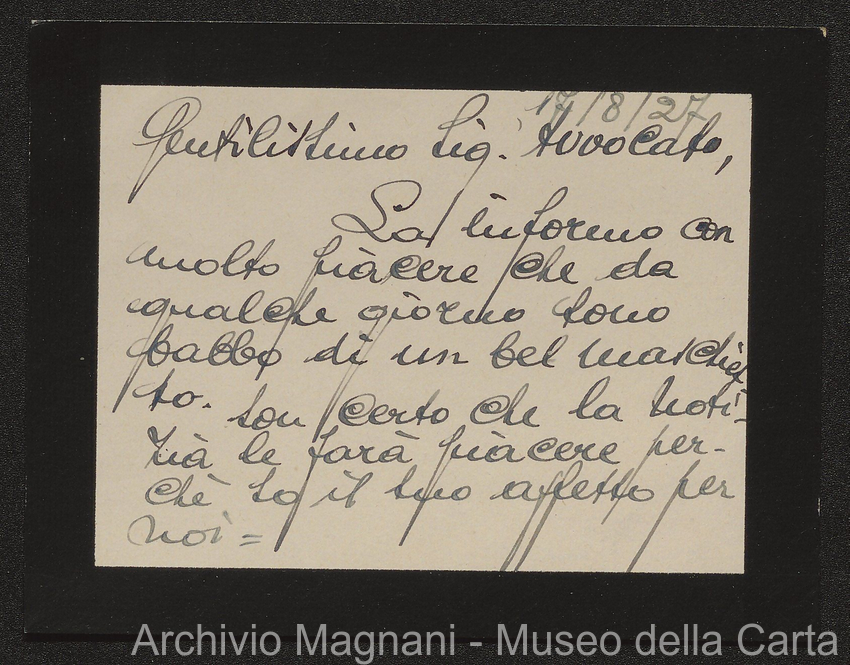 17/8/27
Gentilissimo Sig. Avvocato,
La informo con
molto piacere che da
qualche giorno sono
babbo di un bel maschiet
to. Son certo che la noti-
zia le farà piacere per-
chè so il suo affetto per
noi=
Archivio Magnani - Museo della Carta